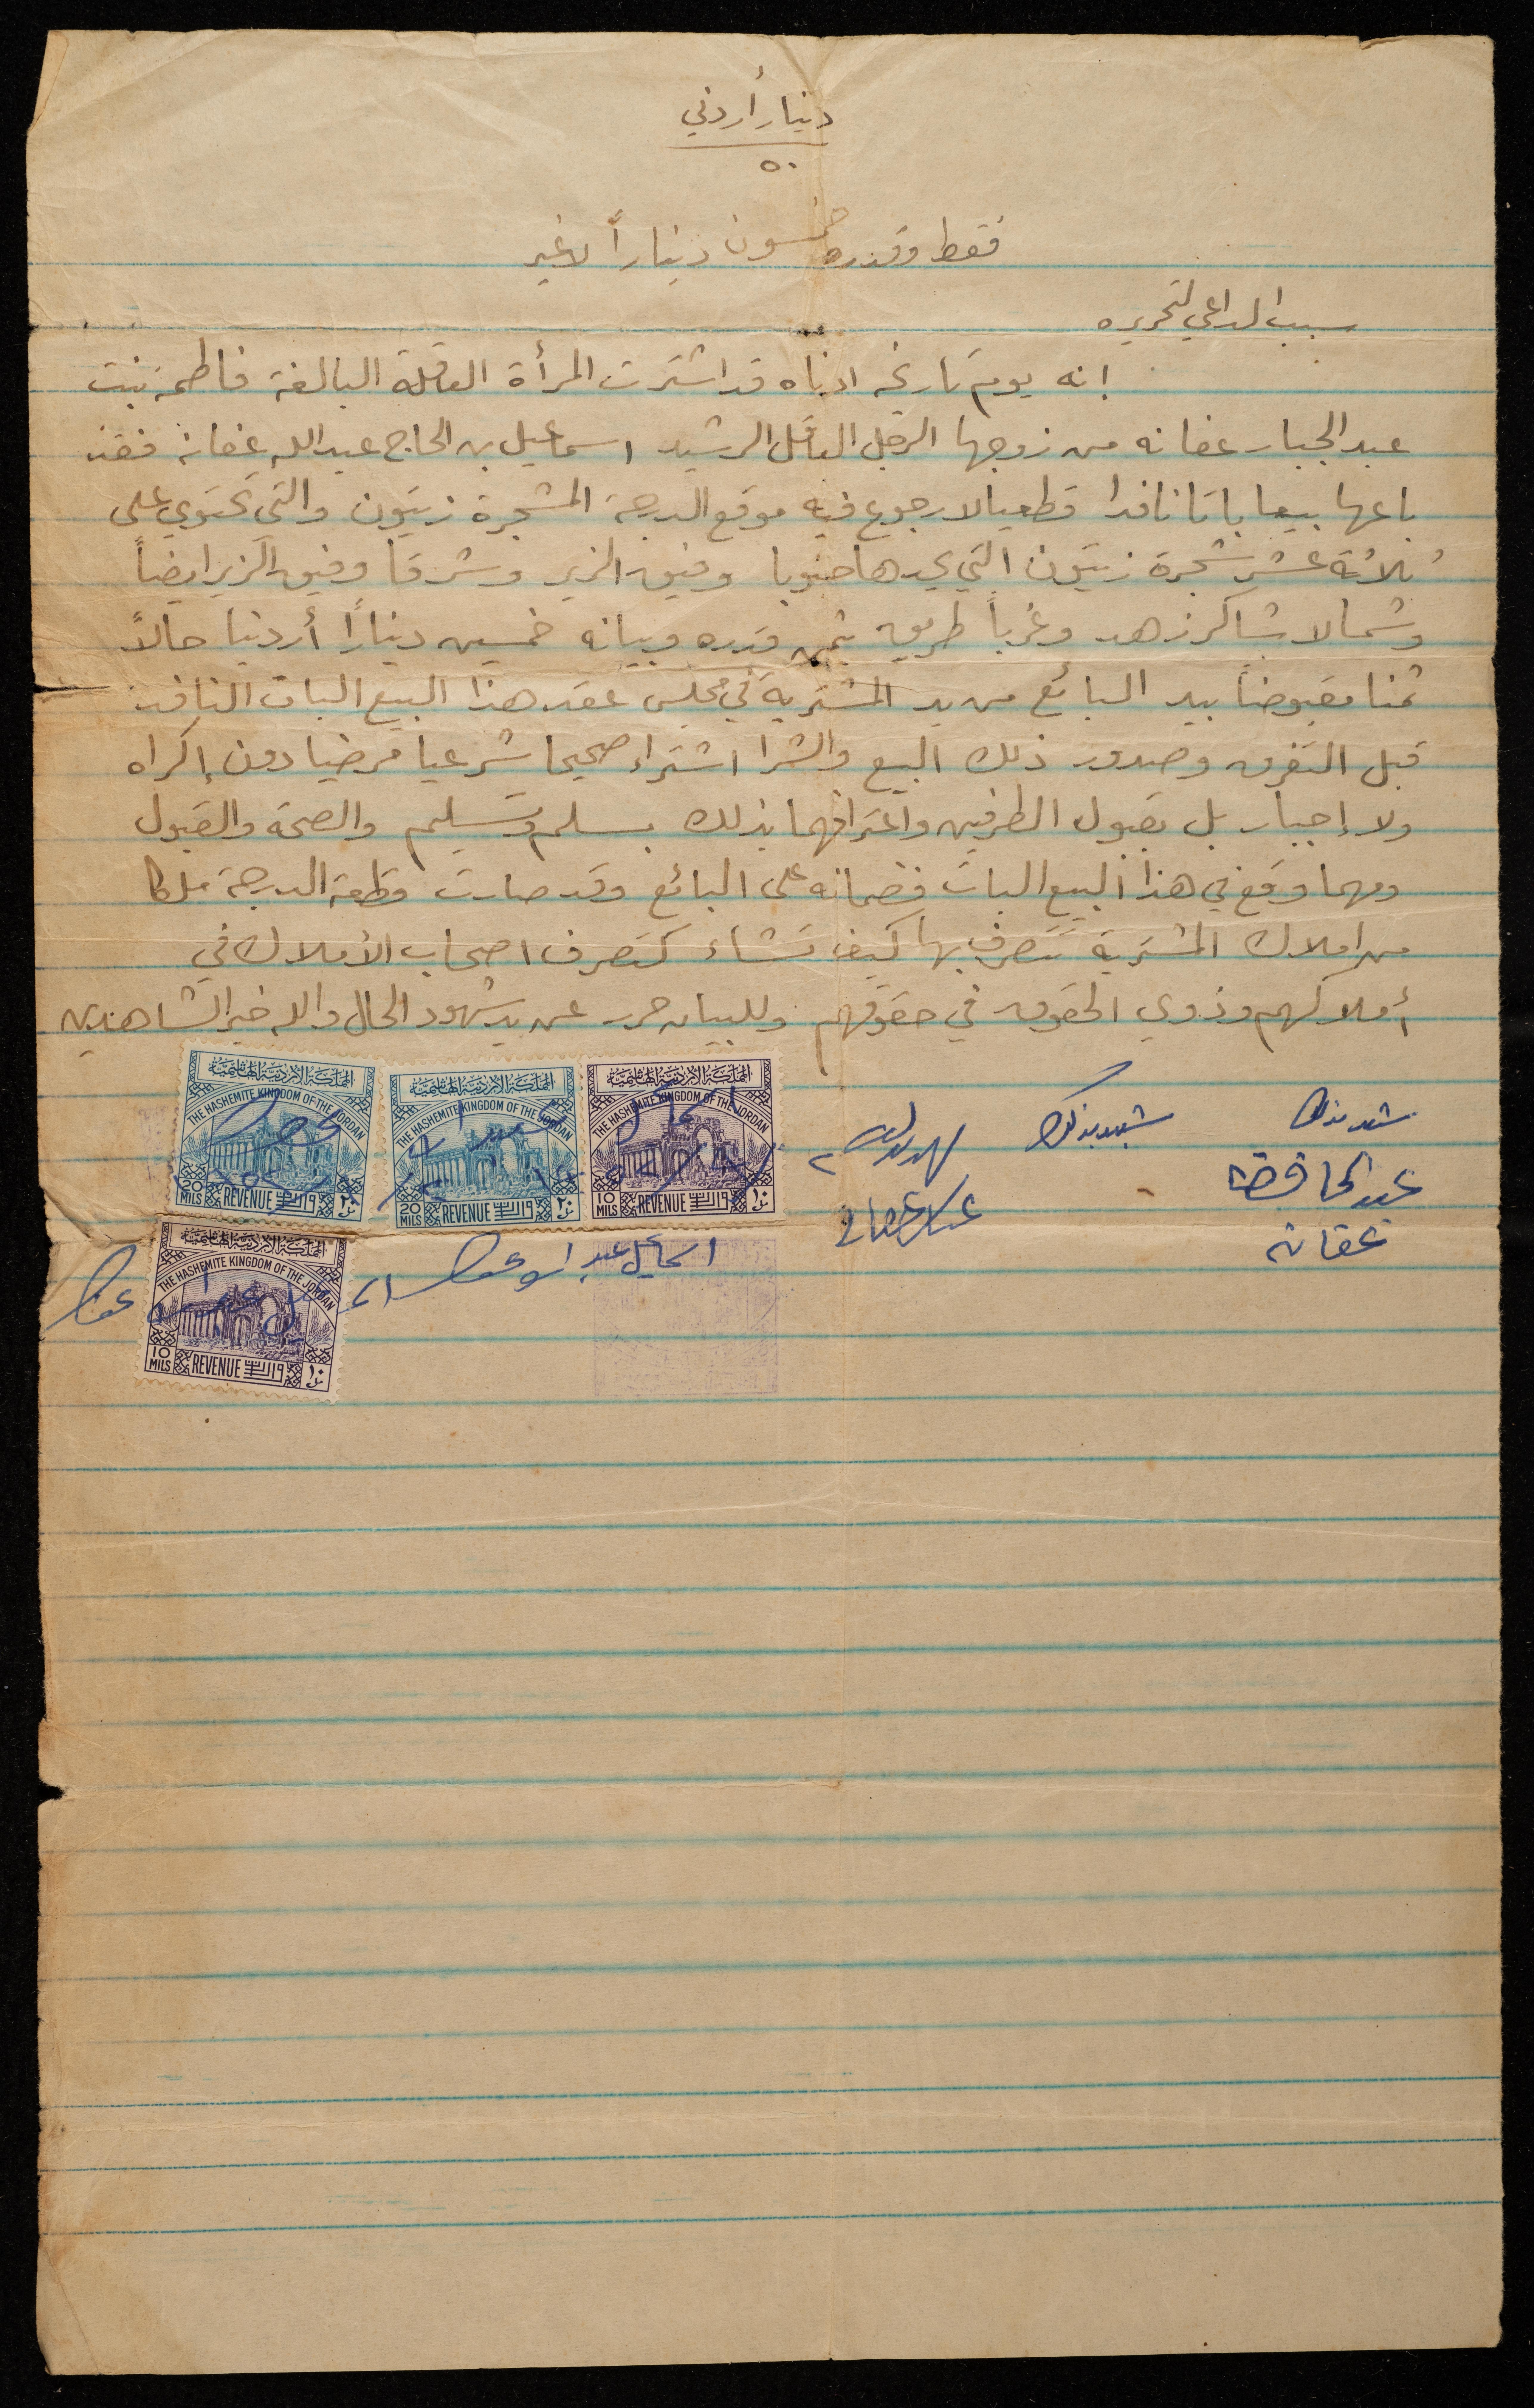 دينار أردني
٥٠
فقط وقدره خمسون ديناراً لا غير
سبب الداعي لتحريره
انه يوم تاريخه ادناه قد اشترت المرأة العاقلة البالغة فاطمة بنت
عبد الجبار عفانه من زوجها الرجل العاقل الرشيد اسماعيل بن الحاج عبد الله عفانه فقد
باعها بيعا باتا نافدا قطعيا لا رجوع فيه موقع الدرجة المشجرة زيتون والتي تحتوي على
ثلاثة عشر شجرة زيتون التي يحدها جنوبا وفيق الزير وشرقا وفيق الزير ايضاً
وشمالا شاكر زهد وغرباً طريق بثمن قدره وبيانه خمسين ديناراً أردنيا حالاً
ثمنا مقبوضاً بيد البائع من يد المشترية في مجلس عقد هذا البيع البات النافد
قبل التفرق وصدور ذلك البيع والشرا اشتراء صحيحا شرعيا مرضيا دون إكراه
ولا إجبار بل بقبول الطرفين واعترافهما بذلك بسلم وتسليم والصحة والقبول
ومهما وقع في هذا البيع البات فضمانه على البائع وقد صارت قطعة الدرجة ملكا
من املاك المشترية تتصرف بها كيف تشاء كتصرف اصحاب الأملاك في
أملاكهم وذوي الحقوق في حقوقهم وللبيان حرر عن يد شهود الحال والله خير الشاهدين
شهد بذلك
شهد بذلك
عبد الحافظ
عفانه
اسماعيل عبد الله عفانه
المملكة الاردنية الهاشمية
THE HASHEMITE KINGDOM OF THE JORDAN
20 MILS REVENUE ٢٠
المملكة الاردنية الهاشمية
THE HASHEMITE KINGDOM OF THE JORDAN
20 MILS REVENUE ٢٠
المملكة الاردنية الهاشمية
THE HASHEMITE KINGDOM OF THE JORDAN
10 MILS REVENUE ١٠
المملكة الاردنية الهاشمية
THE HASHEMITE KINGDOM OF THE JORDAN
10 MILS REVENUE ١٠